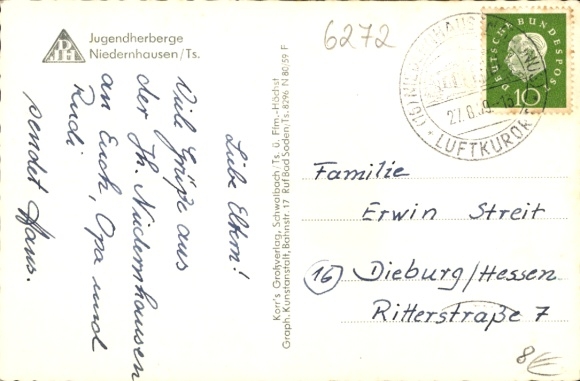 Jugendherberge
Niedernhausen/Ts.
DJH
6272
Liebe Eltern!
Viele Grüße aus
der Jh. Niedernhausen
an Euch, Opa und
Rudi
sendet Hans.
Korr's Großverlag, Schwalbach/Ts. ü. Ffm.-Höchst
Graph. Kunstanstalt, Bahnstr. 17 Ruf Bad Soden/Ts. 8296 N 80/59 F
DEUTSCHE BUNDESPOST
10
LUFTKURORT
Familie
Erwin Streit
(16) Dieburg/Hessen
Ritterstraße 7
8€